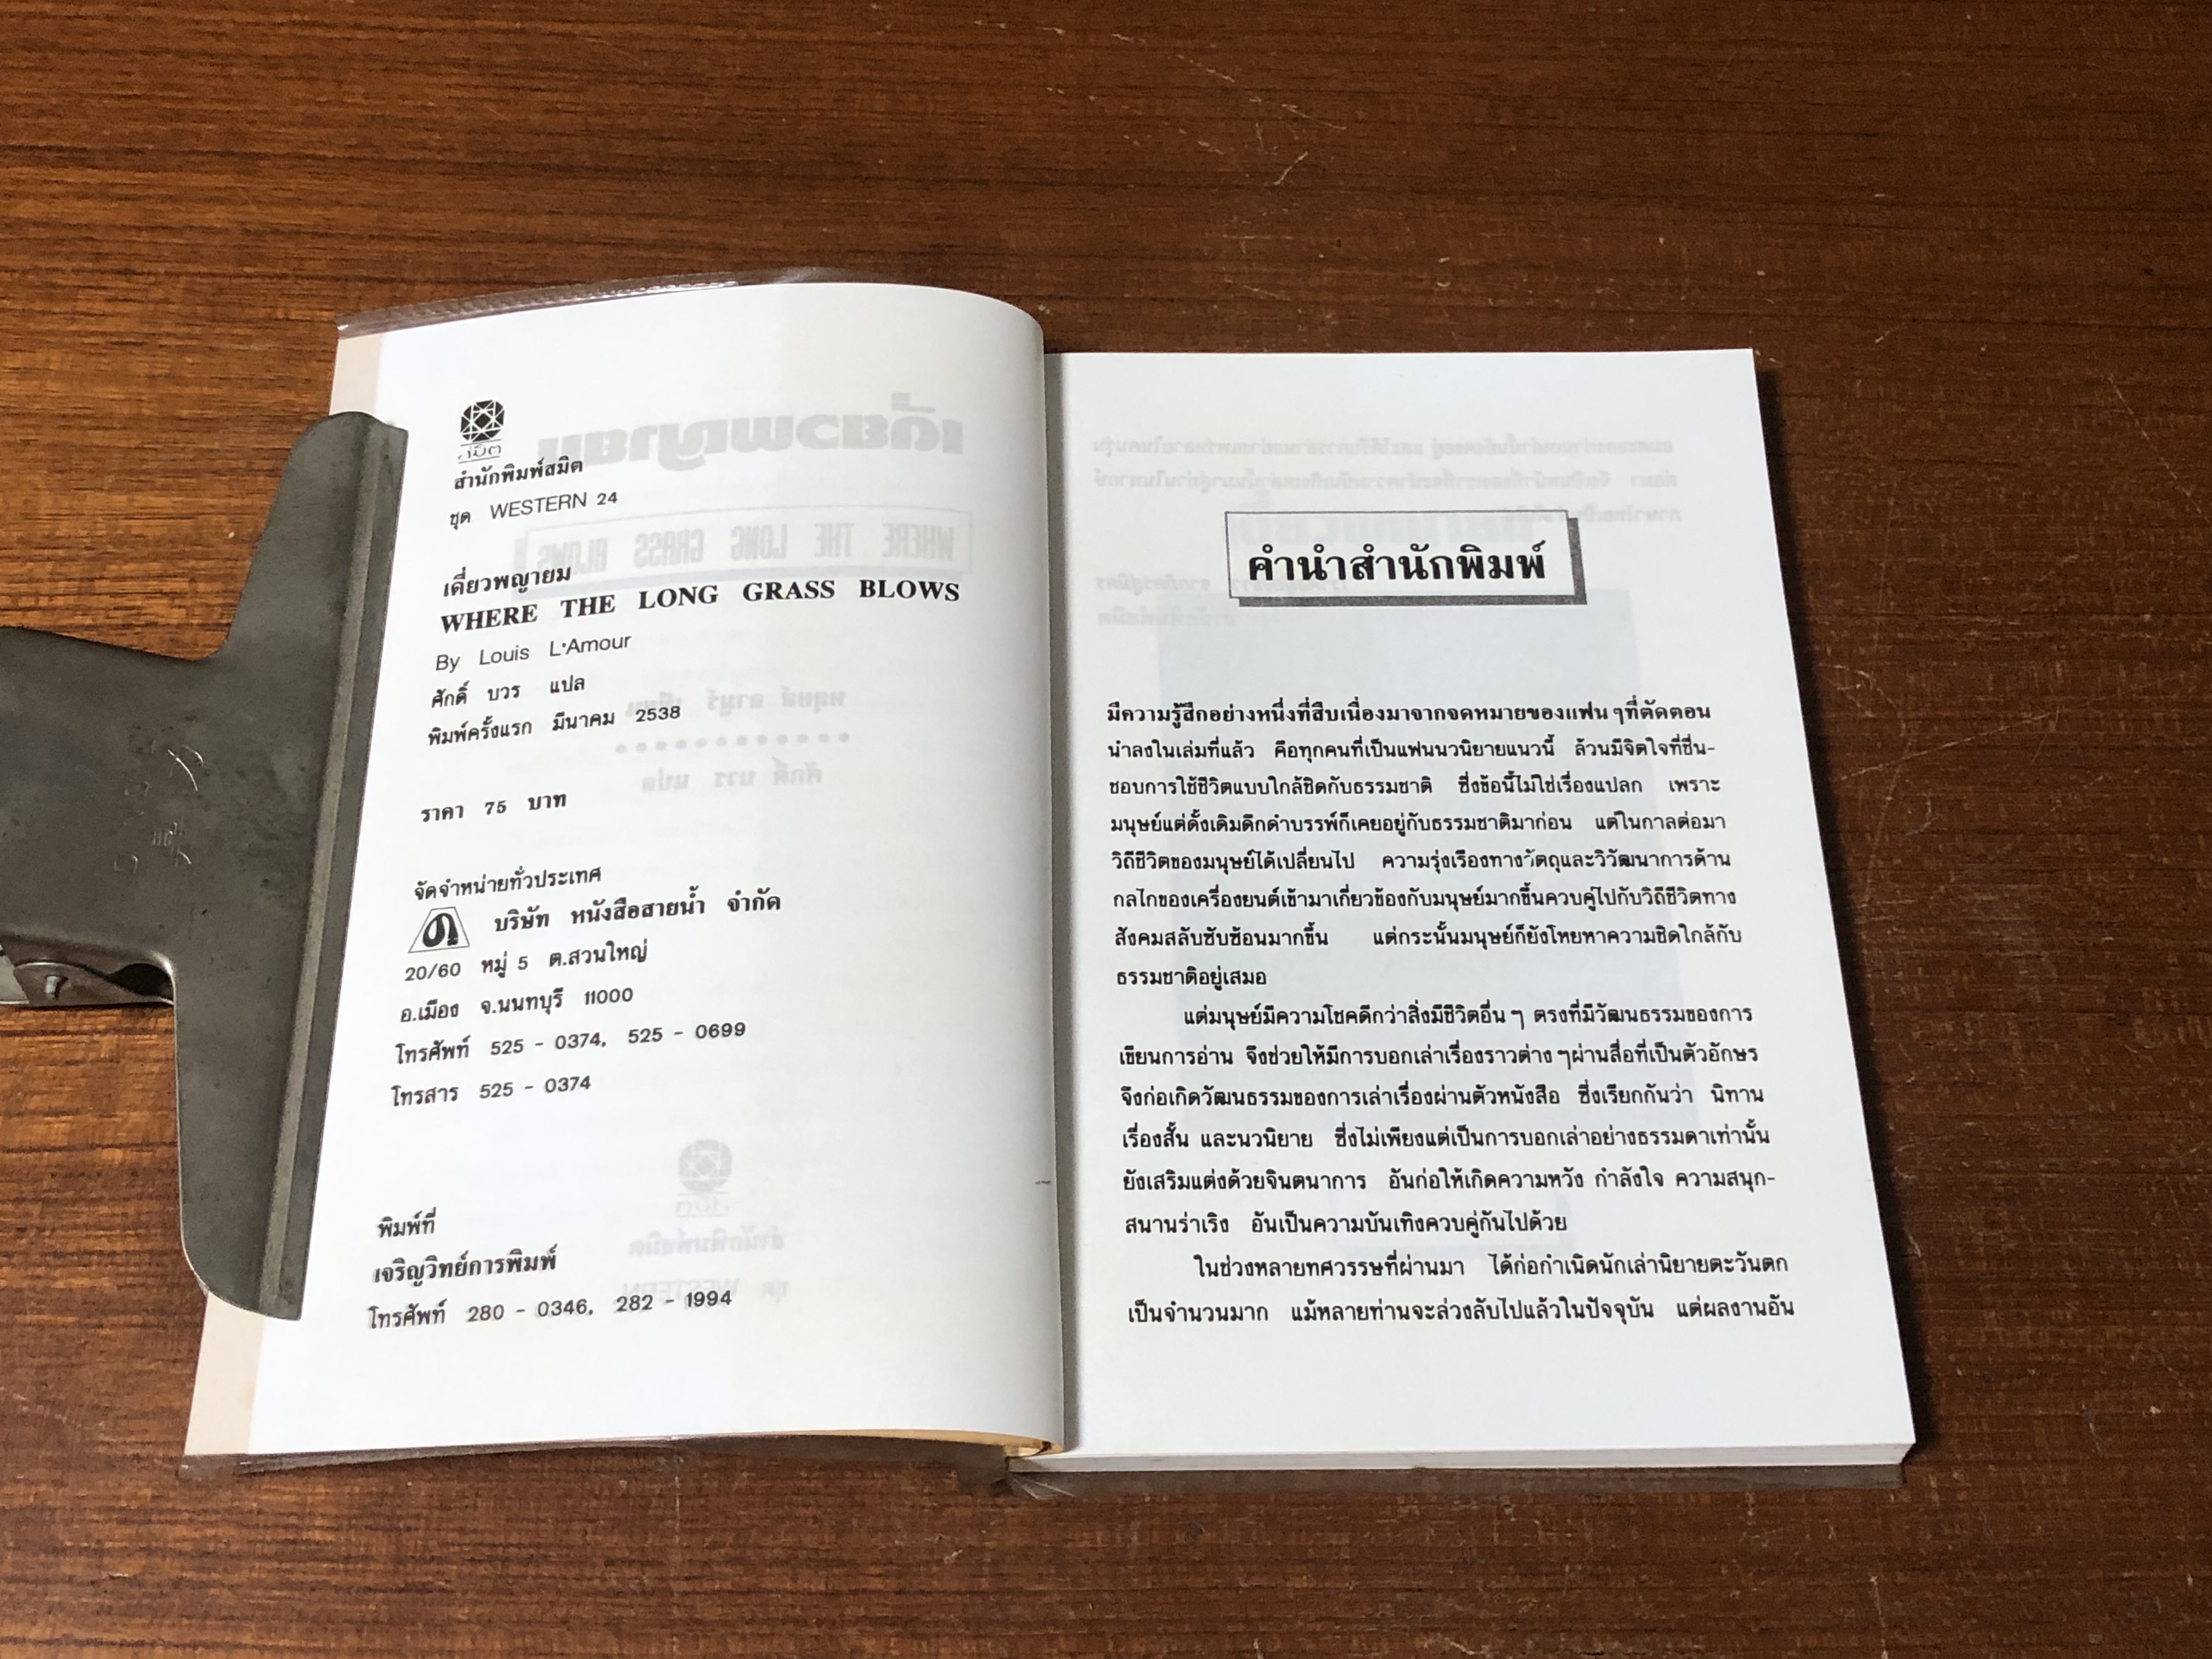 สมิต
สำนักพิมพ์สมิต
ชุด WESTERN 24
เดี่ยวพญายม
WHERE THE LONG GRASS BLOWS
By Louis L'Amour
ศักดิ์ บวร แปล
พิมพ์ครั้งแรก มีนาคม 2538
ราคา 75 บาท
จัดจำหน่ายทั่วประเทศ
บริษัท หนังสือสายน้ำ จำกัด
20/60 หมู่ 5 ต.สวนใหญ่
อ.เมือง จ.นนทบุรี 11000
โทรศัพท์ 525 - 0374, 525 - 0699
โทรสาร 525 - 0374
พิมพ์ที่
เจริญวิทย์การพิมพ์
โทรศัพท์ 280 - 0346, 282 - 1994
คำนำสำนักพิมพ์
มีความรู้สึกอย่างหนึ่งที่สืบเนื่องมาจากจดหมายของแฟน ๆที่ตัดตอน
นำลงในเล่มที่แล้ว คือทุกคนที่เป็นแฟนนวนิยายแนวนี้ ล้วนมีจิตใจที่ชื่น-
ชอบการใช้ชีวิตแบบใกล้ชิดกับธรรมชาติ ซึ่งข้อนี้ไม่ใช่เรื่องแปลก เพราะ
มนุษย์แต่ดั้งเดิมดึกดำบรรพ์ก็เคยอยู่กับธรรมชาติมาก่อน แต่ในกาลต่อมา
วิถีชีวิตของมนุษย์ได้เปลี่ยนไป ความรุ่งเรืองทางวัตถุและวิวัฒนาการด้าน
กลไกของเครื่องยนต์เข้ามาเกี่ยวข้องกับมนุษย์มากขึ้นควบคู่ไปกับวิถีชีวิตทาง
สังคมสลับซับซ้อนมากขึ้น แต่กระนั้นมนุษย์ก็ยังโหยหาความชิดใกล้กับ
ธรรมชาติอยู่เสมอ
แต่มนุษย์มีความโชคดีกว่าสิ่งมีชีวิตอื่น ๆ ตรงที่มีวัฒนธรรมของการ
เขียนการอ่าน จึงช่วยให้มีการบอกเล่าเรื่องราวต่าง ๆผ่านสื่อที่เป็นตัวอักษร
จึงก่อเกิดวัฒนธรรมของการเล่าเรื่องผ่านตัวหนังสือ ซึ่งเรียกกันว่า นิทาน
เรื่องสั้น และนวนิยาย ซึ่งไม่เพียงแต่เป็นการบอกเล่าอย่างธรรมดาเท่านั้น
ยังเสริมแต่งด้วยจินตนาการ อันก่อให้เกิดความหวัง กำลังใจ ความสนุก-
สนานร่าเริง อันเป็นความบันเทิงควบคู่กันไปด้วย
ในช่วงหลายทศวรรษที่ผ่านมา ได้ก่อกำเนิดนักเล่านิยายตะวันตก
เป็นจำนวนมาก แม้หลายท่านจะล่วงลับไปแล้วในปัจจุบัน แต่ผลงานอัน